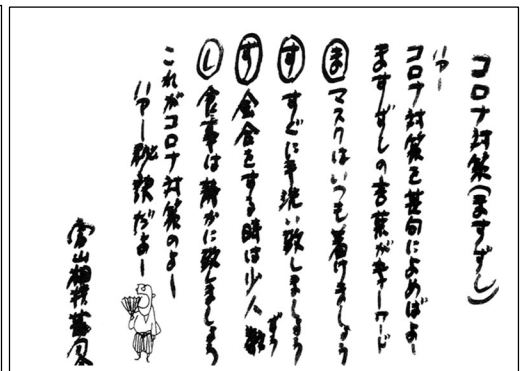 コロナ対策(ますずし)
ハアー
コロナ対策を甚句によめばよー
ますずしの言葉がキーワード
㋮マスクはいつも着けましょう
すすぐに手洗い致しましょう
ず会合をする時は少人数ずつ
し食事は静かに致しましょう
これがコロナ対策のよー
ハアー秘訣だよー
富山相撲甚句